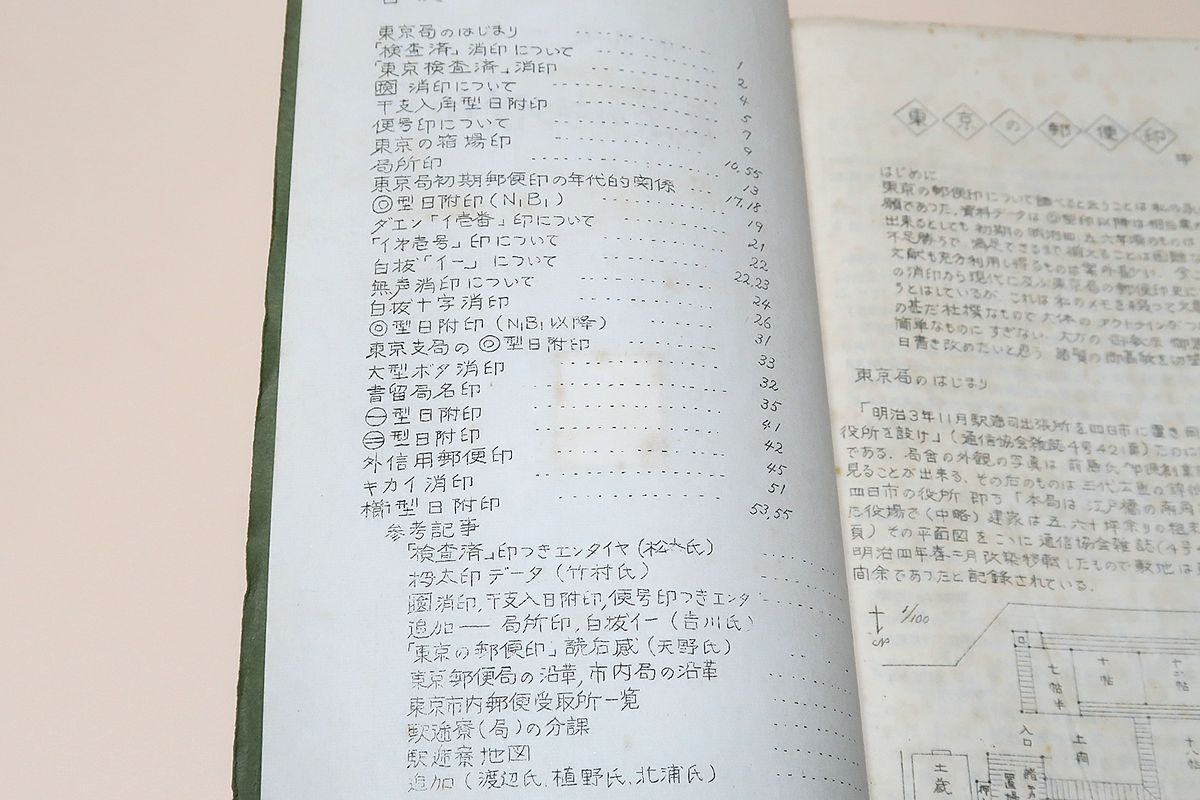 東京局のはじまり
「検査済」消印について 1
「東京検査済」消印 2
消印について 4
干支入角型日附印 5
便号印について 7
東京の箱場印 9
局所印 10,55
東京局初期郵便印の年代的関係 13
◎型日附印(N₁B₁) 17,18
ダエン「イ壱番」印について 19
「イオ壱号」印について 21
白抜「イ一」について 22
無声消印について 22,23
白抜十字消印 24
◎型日附印(N₁B₁以降) 26
東京支局の◎型日附印 31
大型ボタ消印 33
書留局名印 32
㊀型日附印 35
㊂型日附印 41
外信用郵便印 42
キカイ消印 45
櫛型日附印 51
53,55
参考記事
「検査済」印つきエンタイヤ(松本氏)
拇太印データ(竹村氏)
消印,干支入日附印,便号印つきエンタ
追加── 局所印,白抜イ一(吉川氏)
「東京の郵便印」読后感(天野氏)
東京郵便局の沿革,市内局の沿革
東京市内郵便受取所一覧
駅逓寮(局)の分課
駅逓寮地図
追加(渡辺氏,植野氏,北浦氏)
東京の郵便印
はじめに
東京の郵便印について調べると云うことは私の永
願であった.資料データは◎型印以降は相当
出来るとしても初期の明治四,五六年頃のものは
不足勝ちで,満足できるまで揃えることは困難
文献も充分利用し得るものは案外尠い.今
の消印から現代に及ぶ東京局の郵便印史に
うとはしているが,これは私のメモを綴って
の甚だ杜撰なもので大体のアウトライン
簡単なものにすぎない.大方の御教示
日書き改めたいと思う.諸賢の御高教を切望
東京局のはじまり
「明治3年11月駅逓司出張所を四日市に置き
役所を設け」(逓信協会雑誌4号42頁)たのに
である.局舎の外観の写真は前島氏"郵便創業
見ることが出来る.その后のものは三代広重の錦
四日市の役所即ち「本局は江戸橋の南角
た役場で(中略)建家は五六十坪余りの粗
頁)その平面図をこゝに逓信協会雑誌(4号
明治四年春三月改築移転したもので敷地は
間余であったと記録されている.
1/100
N
七帖半
十帖
入口
土間
土蔵
置場